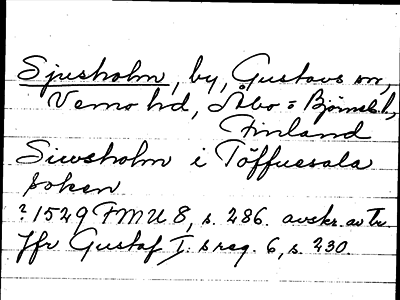 Sjusholm, by, Gustavs sn,
Vemo hd, Åbo = Björneb. l,
Finland
Siwsholm i Töffuesala
soken
? 1529 FMU 8, s. 286. avskr. av Tr
Jfr Gustaf I:s reg. 6, s. 230.